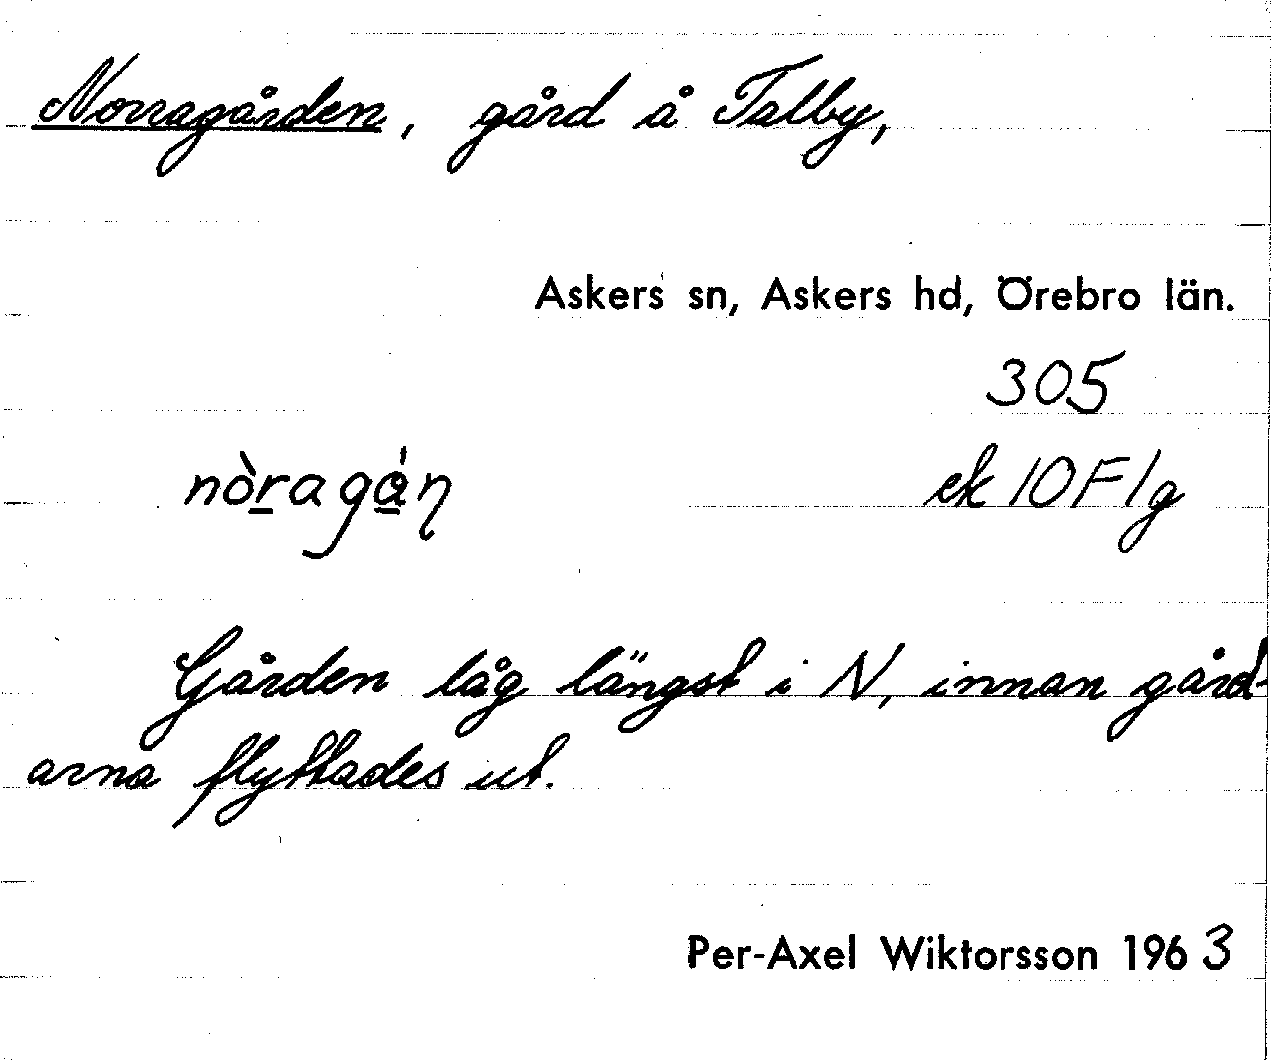 Norragården, gård å Talby,
Askers sn, Askers hd, Örebro län.
305
nòr̲agá̲n ek 10F1g
Gården låg längst i N, innan gård-
arna flyttades ut.
Per-Axel Wiktorsson 1963